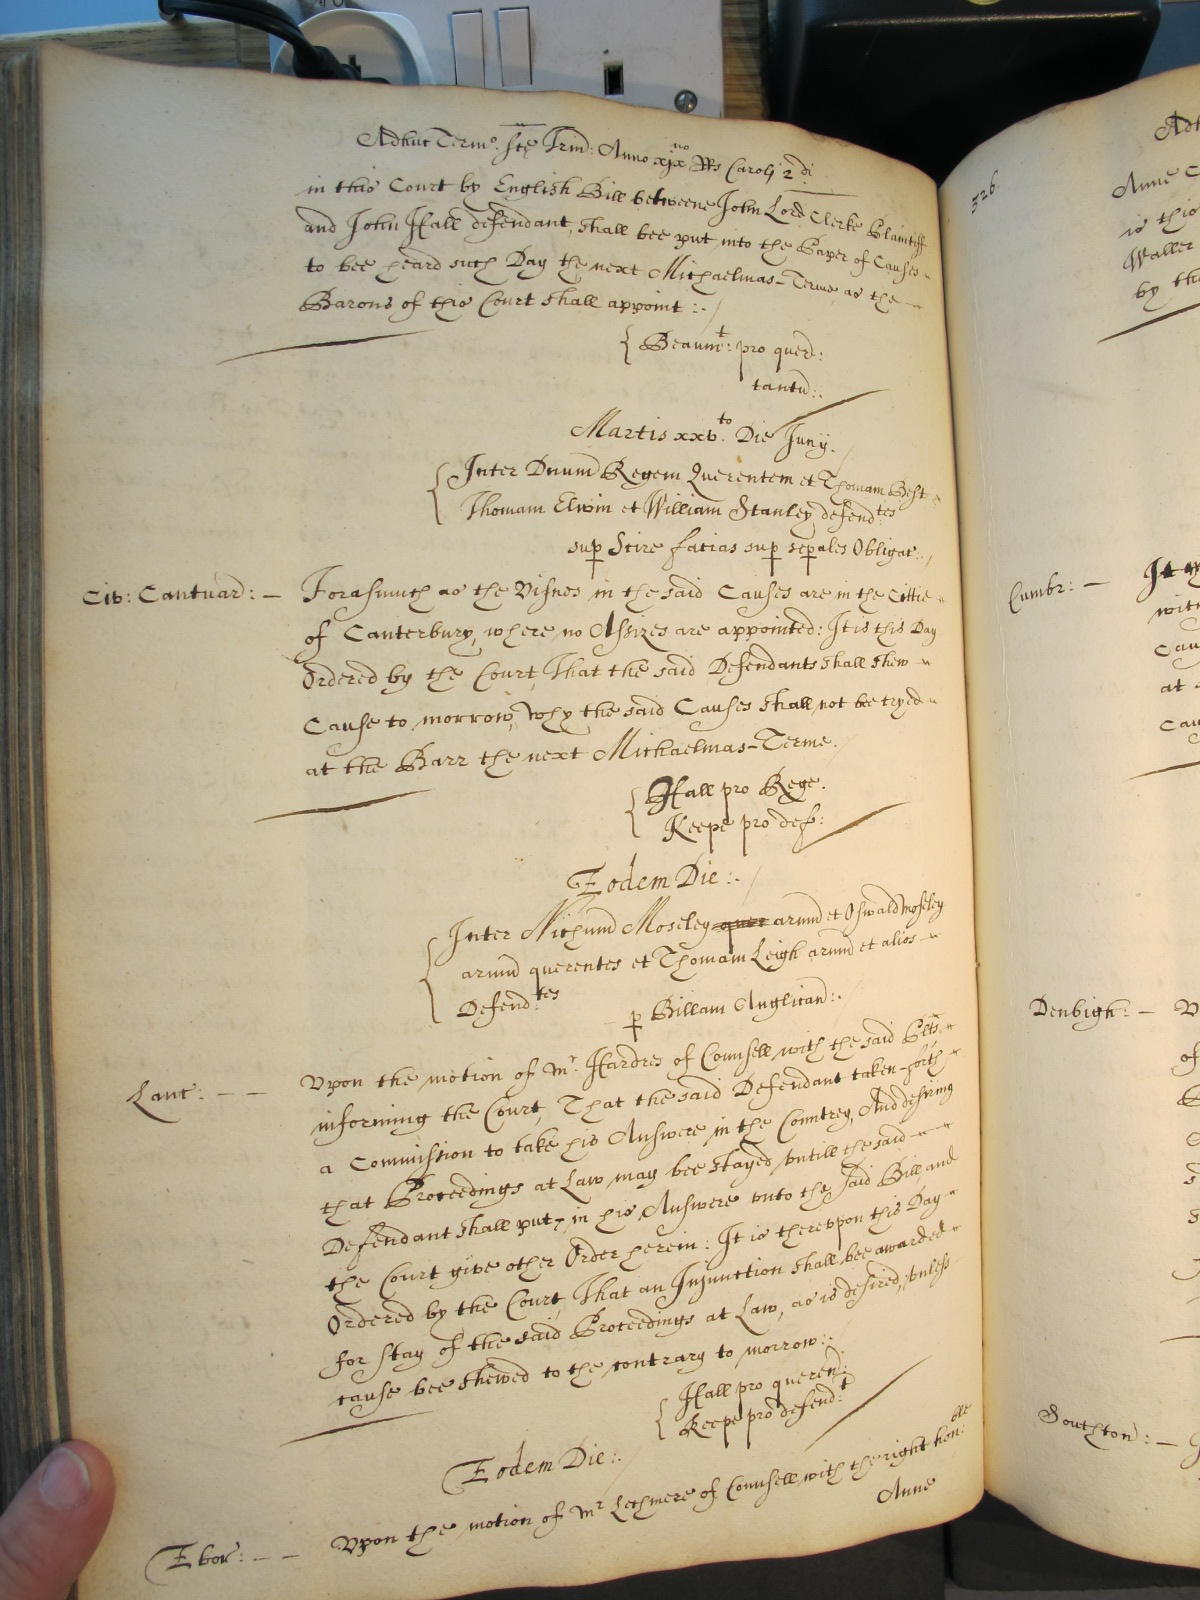 Adhuc Termo. Scte Trin̄: Anno xixno RRs Caroli 2di
in this Court by English Bill betweene John Lord Clerke Plaintiff
and John Hall defendant, shall bee put into the Paper of Causes
to bee heard such Day the next Michaelmas-Terme as the
Barons of this Court shall appoint:./
Beaumt: pro quer:
tantū:.
Martis xxvto. Die Junij.
Inter Dnum Regem Querentem et Thomam Best
Thomam Elwin et William Stanley defend:tes
sup Scire facias sup sepales Obligac:./
Civ: Cantuar: — Forasmuch as the Visnes in the said Causes are in the Cittie
of Canterbury, where no Assizes are appointed: It is this Day
Ordered by the Court, That the said Defendants shall shew
Cause to morrow, why the said Causes shall not be tryed
at the Barr the next Michaelmas-Terme.
Hall pro Rege.
Keepe pro def:
Eodem Die:.
Inter Nichum Moseley quer arum et Oswald Moseley
arum querentes et Thomam Leigh arum et alios
Defend:tes p Billam Anglican:.
Lanc: — — Vpon the motion of Mr. Hardres of Counsell with the said Plts
informing the Court, That the said Defendant taken forth
a Commission to take his Answere in the Countrey, And desiring
that Proceedings at Law may bee stayed, vntill the said
Defendant shall put in his Answere vnto the said Bill, and
the Court give other Order herein: It is therevpon this Day
Ordered by the Court, That an Injunction shall bee awarded
for stay of the said Proceedings at Law, as is desired, vnless
cause bee shewed to the contrary to morrow:.
Hall pro queren:
Keepe pro defend:t
Eodem Die:.
Ebor: — — Vpon the motion of Mr Lechmere of Counsell, with the right hon:ble
Anne
326.
Adh
Anne C
is this
Waller
by the
Cumbr: — It
with
Cau
at
Cau
Denbigh: — V
of
Southton: —